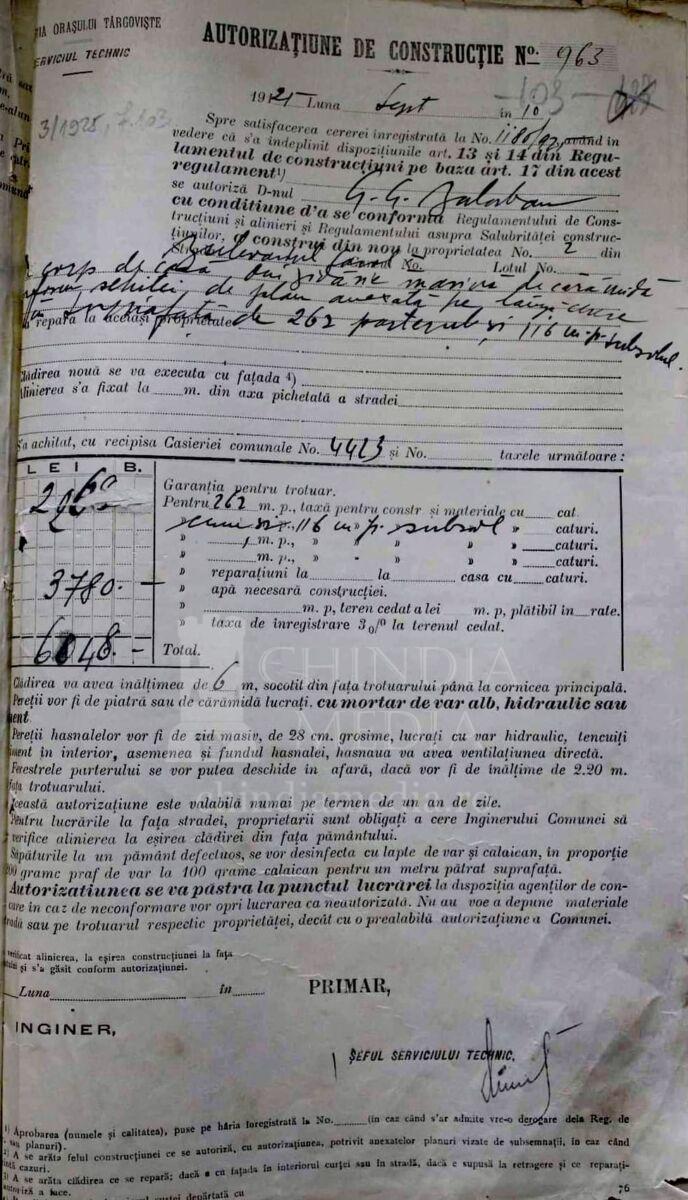 IA ORAȘULUI TÂRGOVIȘTE
SERVICIUL TECHNIC
AUTORIZAȚIUNE DE CONSTRUCȚIE No. 963
103
3/1925
1925 Luna Sept în 10
Spre satisfacerea cererei inregistrată la No. având in
vedere că s'a îndeplinit dispozițiunile art. 13 și 14 din Regu-
lamentul de construcțiuni pe baza art. 17 din acest
regulament¹)
se autoriză D-nul G. G.
cu condițiune d'a se conforma Regulamentului de Cons-
trucțiuni și alinieri și Regulamentului asupra Salubrităței construc-
țiunilor, a construi din nou la proprietatea No. 2 din
No. Lotul No.
corp de casa din zidărie masivă de cărămidă
schiței de plan anexată pe lângă cerere
repara la aceiași proprietate
suprafață de 262 parterul și 116 m.p. subsolul.
Clădirea nouă se va executa cu fațada ⁴)
Alinierea s'a fixat la m. din axa pichetată a stradei
S'a achitat, cu recipisa Casieriei comunale No. 4423 și No. taxele următoare :
LEI B.
Garanția pentru trotuar.
Pentru 262 m. p., taxă pentru constr și materiale cu cat.
116 m. p. subsol » caturi.
» m. p., » » » » caturi.
» m. p., » » » » caturi.
» reparațiuni la la casa cu caturi.
3780.— » apă necesară construcției.
» m. p, teren cedat a lei m. p, plătibil în rate.
» taxa de inregistrare 3 0/0 la terenul cedat.
6048.— Total.
CHINDIA
MEDIA
chindiamedia.ro
Clădirea va avea inălțimea de 6 m, socotit din fața trotuarului până la cornicea principală.
Pereții vor fi de piatră sau de cărămidă lucrați. cu mortar de var alb, hidraulic sau
ment
Pereții hasnalelor vor fi de zid masiv, de 28 cm. grosime, lucrați cu var hidraulic, tencuiți
iment în interior, asemenea și fundul hasnalei, hasnaua va avea ventilațiunea directă.
Ferestrele parterului se vor putea deschide in afară, dacă vor fi de înălțime de 2.20 m.
fața trotuarului.
Această autorizațiune este valabilă numai pe termen de un an de zile.
Pentru lucrările la fața stradei, proprietarii sunt obligați a cere Inginerului Comunei să
verifice alinierea la eșirea clădirei din fața pământului.
Săpăturile la un pământ defectuos, se vor desinfecta cu lapte de var și calaican, în proporție
grame praf de var la 100 grame calaican pentru un metru pătrat suprafață.
Autorizațiunea se va păstra la punctul lucrărei la dispoziția agenților de con-
care in caz de neconformare vor opri lucrarea ca neautorizată. Nu au voe a depune materiale
stradă sau pe trotuarul respectic proprietăței, decât cu o prealabilă autorizațiune a Comunei.
verificat alinierea, la eșirea construcției la fața
și s'a găsit conform autorizațiunei.
Luna în
PRIMAR,
INGINER,
ȘEFUL SERVICIULUI TECHNIC,
¹) Aprobarea (numele și calitatea), puse pe hârtia înregistrată la No. (in caz când s'ar admite vre-o derogare dela Reg. de
sau planuri).
²) A se arăta felul construcției ce se autoriză, cu autorizațiunea, potrivit anexatelor planuri vizate de subsemnații, in caz când
cazuri.
³) A se arăta clădirea ce se repară; dacă e cu fațada în interiorul curței sau în stradă, dacă e supusă la retragere și ce reparați-
autoriză a face.
depărtată cu
76